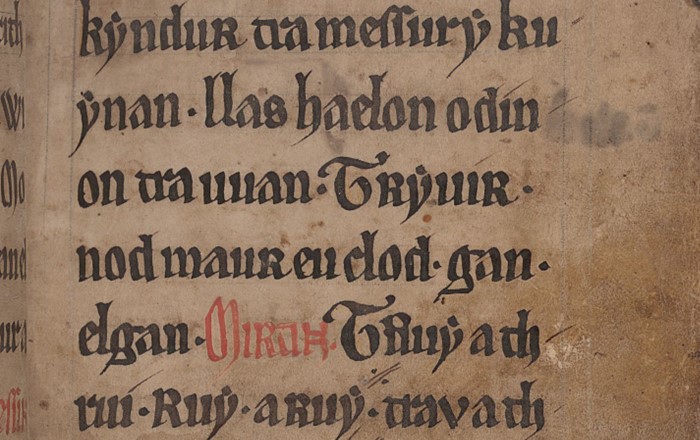 kyndur tra messur y ku
ynan · llas haelon o din
on tra uuan · Tryuir ·
nod maur eu clod · gan ·
elgan · Mirtin · Truy a th
rui · Ruy · a ruy · trav a th